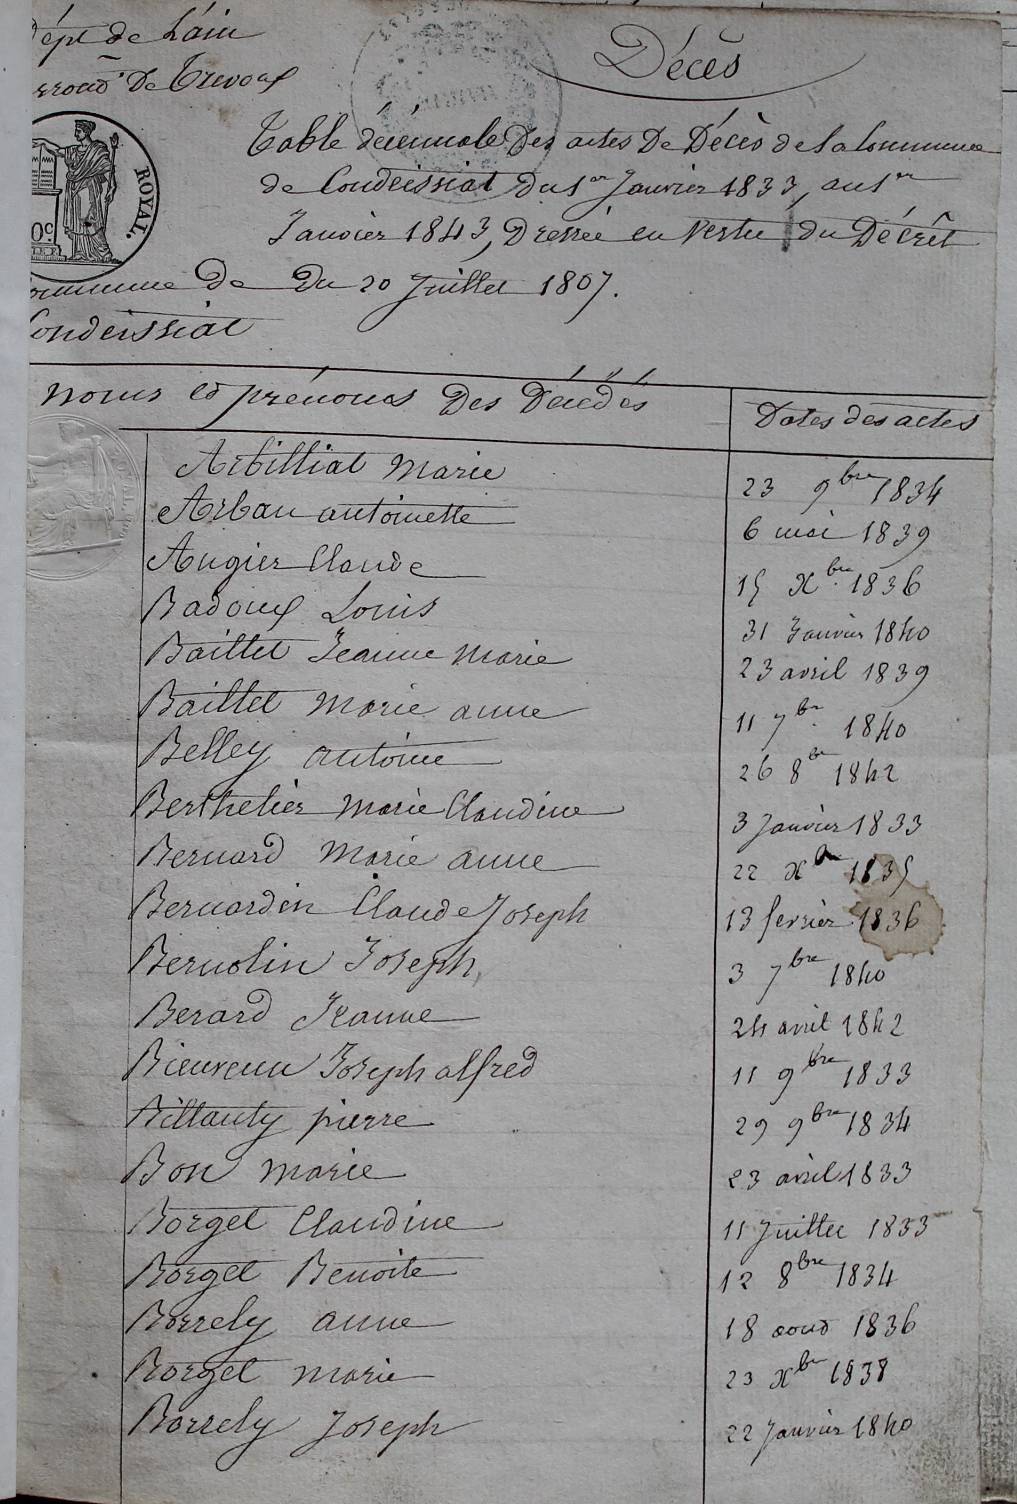 Dépt de L'ain
arrond.t De Trevoux
Décès
ROYAL.
0c
Table décénnale Des actes De Décès de la Commune
de Condeissiat Du 1er Janvier 1833, au 1er
Janvier 1843, Dressée en Vertu du Décrêt
Commune De Du 20 Juillet 1807.
Condeissiat
noms et prénoms Des Décédés Dates des actes
Arbilliat Marie 23 9bre 1834
Arban antoinette 6 mai 1839
Augier Claude 15 Xbre 1836
Badoux Louis 31 Janvier 1840
Baillet Jeanne Marie 23 avril 1839
Baillet Marie anne 11 7bre 1840
Belley antoine 26 8bre 1842
Berthelier Marie Claudine 3 Janvier 1833
Bernard Marie anne 22 Xbre 1835
Bernardin Claude Joseph 13 fevrier 1836
Bernolin Joseph 3 7bre 1840
Berard Jeanne 24 avril 1842
Bienvenu Joseph alfred 11 9bre 1833
Billauty pierre 29 9bre 1834
Bon Marie 23 avril 1833
Borget Claudine 11 Juillet 1833
Borget Benoite 12 8bre 1834
Borrely anne 18 aout 1836
Borget Marie 23 Xbre 1838
Borrely Joseph 22 Janvier 1840